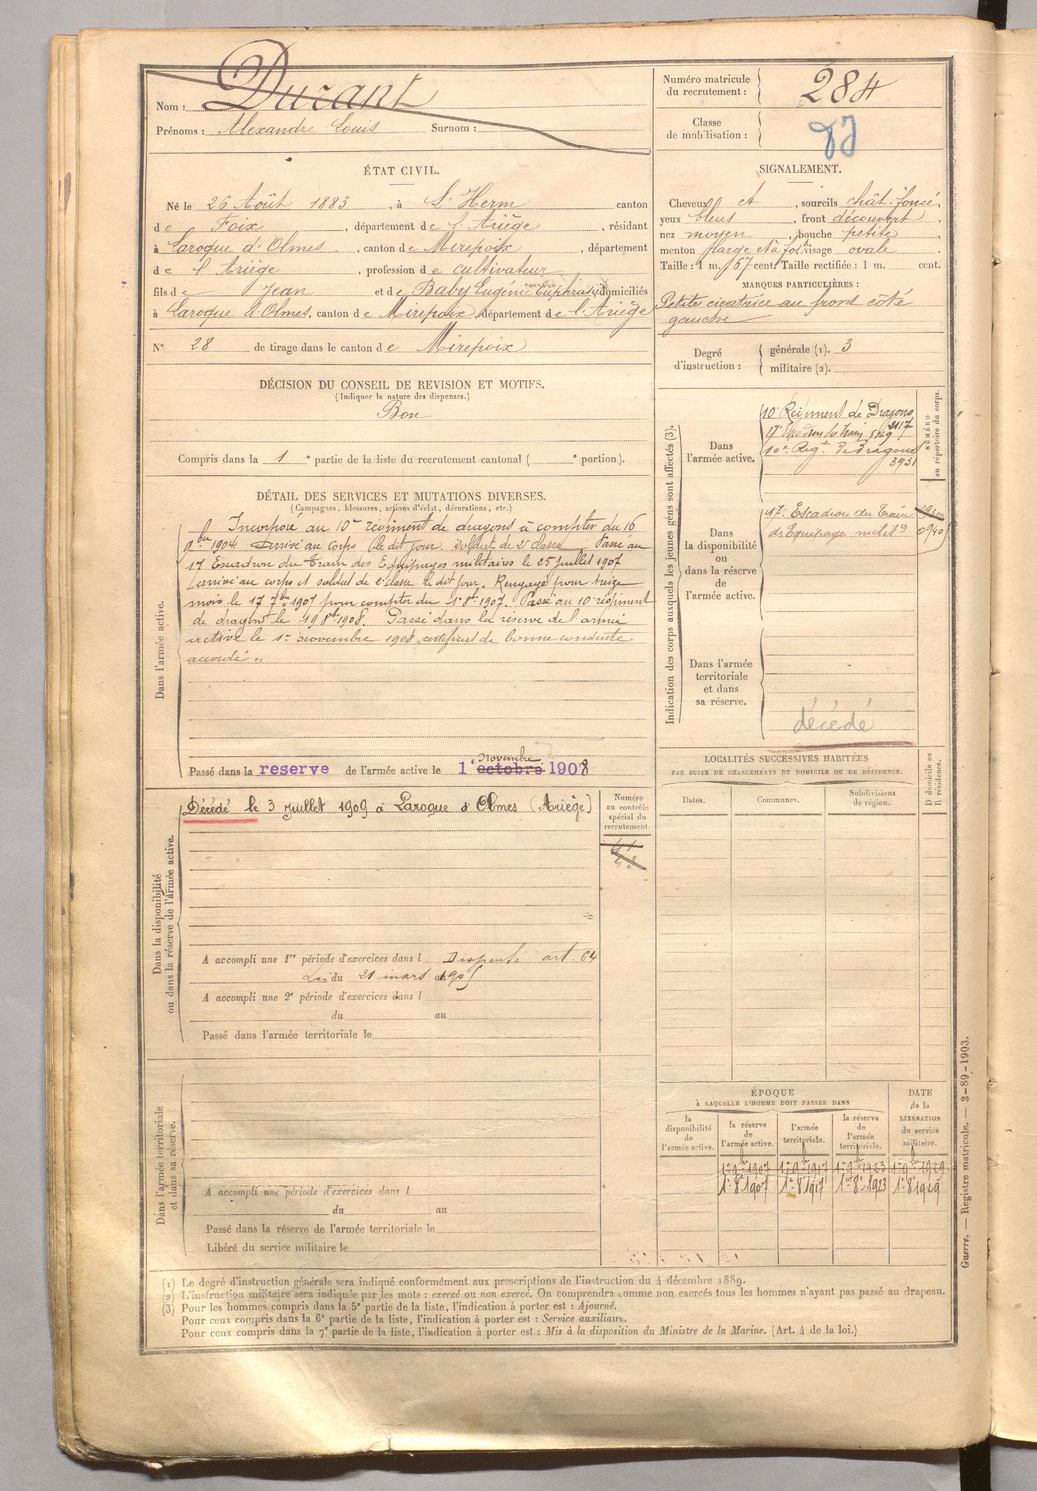 Nom : Durant
Prénoms : Alexandre Louis Surnom :
Numéro matricule du recrutement : 284
Classe de mobilisation :
ÉTAT CIVIL.
Né le 26 Août 1883, à L'Herm canton
de Foix, département de l'Ariège, résidant
à Laroque d'Olmes, canton de Mirepoix, département
de l'Ariège, profession de cultivateur
fils de Jean et de Baby Eugénie Euphrasie domiciliés
à Laroque d'Olmes, canton de Mirepoix, département de l'Ariège
N° 28 de tirage dans le canton de Mirepoix
SIGNALEMENT.
Cheveux et, sourcils chât. foncé,
yeux bleus, front découvert,
nez moyen, bouche petite,
menton large et à fos. visage ovale
Taille : 1 m. 67 cent. Taille rectifiée : 1 m. cent.
MARQUES PARTICULIÈRES :
Petite cicatrice au front côté
gauche
Degré d'instruction : générale (1). 3
militaire (2).
DÉCISION DU CONSEIL DE REVISION ET MOTIFS.
(Indiquer la nature des dispenses.)
Bon
Compris dans la 1e partie de la liste du recrutement cantonal ( e portion).
DÉTAIL DES SERVICES ET MUTATIONS DIVERSES.
(Campagnes, blessures, actions d'éclat, décorations, etc.)
Dans l'armée active.
Incorporé au 10e régiment de dragons à compter du 16
9bre 1904 Arrivé au corps le dit jour, soldat de 2e classe Passé au
17 Escadron du Train des Equipages militaires le 25 juillet 1907
arrivé au corps et soldat de 2e classe le dit jour. Rengagé pour treize
mois le 17 7bre 1907 pour compter du 1er 8bre 1907. Passé au 10 régiment
de dragons le 19 8bre 1908. Passé dans la réserve de l'armée
active le 1er novembre 1908, certificat de bonne conduite
accordé "
Passé dans la reserve de l'armée active le 1er octobre novembre 1908
Indication des corps auxquels les jeunes gens sont affectés (3).
NUMÉRO au répertoire du corps.
Dans l'armée active.
10e Régiment de Dragons
2117
17e Escadron du train 5769
10e Regt de dragons
3931
Dans la disponibilité ou dans la réserve de l'armée active.
17e Escadron du Train
des Equipages milit.es 0940
Dans l'armée territoriale et dans sa réserve.
décédé
LOCALITÉS SUCCESSIVES HABITÉES
PAR SUITE DE CHANGEMENTS DE DOMICILE OU DE RÉSIDENCE.
Dates. Communes. Subdivisions de région. D domicile ou R résidence.
Dans la disponibilité ou dans la réserve de l'armée active.
Décédé le 3 Juillet 1909 à Laroque d'Olmes (Ariège)
Numéro au contrôle spécial du recrutement.
43
A accompli une 1re période d'exercices dans l Dispensé art. 64
Loi du 21 mars 1905
A accompli une 2e période d'exercices dans l
du au
Passé dans l'armée territoriale le
Dans l'armée territoriale et dans sa réserve.
A accompli une période d'exercices dans l
du au
Passé dans la réserve de l'armée territoriale le
Libéré du service militaire le
ÉPOQUE
À LAQUELLE L'HOMME DOIT PASSER DANS
la disponibilité de l'armée active. la réserve de l'armée active. l'armée territoriale. la réserve de l'armée territoriale.
DATE de la LIBÉRATION du service militaire.
1er 9bre 1907 1er 9bre 1917 1er 9bre 1923 1er 9bre 1929
1er 8bre 1907 1er 8bre 1917 1er 8bre 1923 1er 8bre 1929
(1) Le degré d'instruction générale sera indiqué conformément aux prescriptions de l'instruction du 4 décembre 1889.
(2) L'instruction militaire sera indiquée par les mots : exercé ou non exercé. On comprendra comme non exercés tous les hommes n'ayant pas passé au drapeau.
(3) Pour les hommes compris dans la 5e partie de la liste, l'indication à porter est : Ajourné.
Pour ceux compris dans la 6e partie de la liste, l'indication à porter est : Service auxiliaire.
Pour ceux compris dans la 7e partie de la liste, l'indication à porter est : Mis à la disposition du Ministre de la Marine. (Art. 4 de la loi.)
Guerre. — Registre matricule. — 2-89-1903.